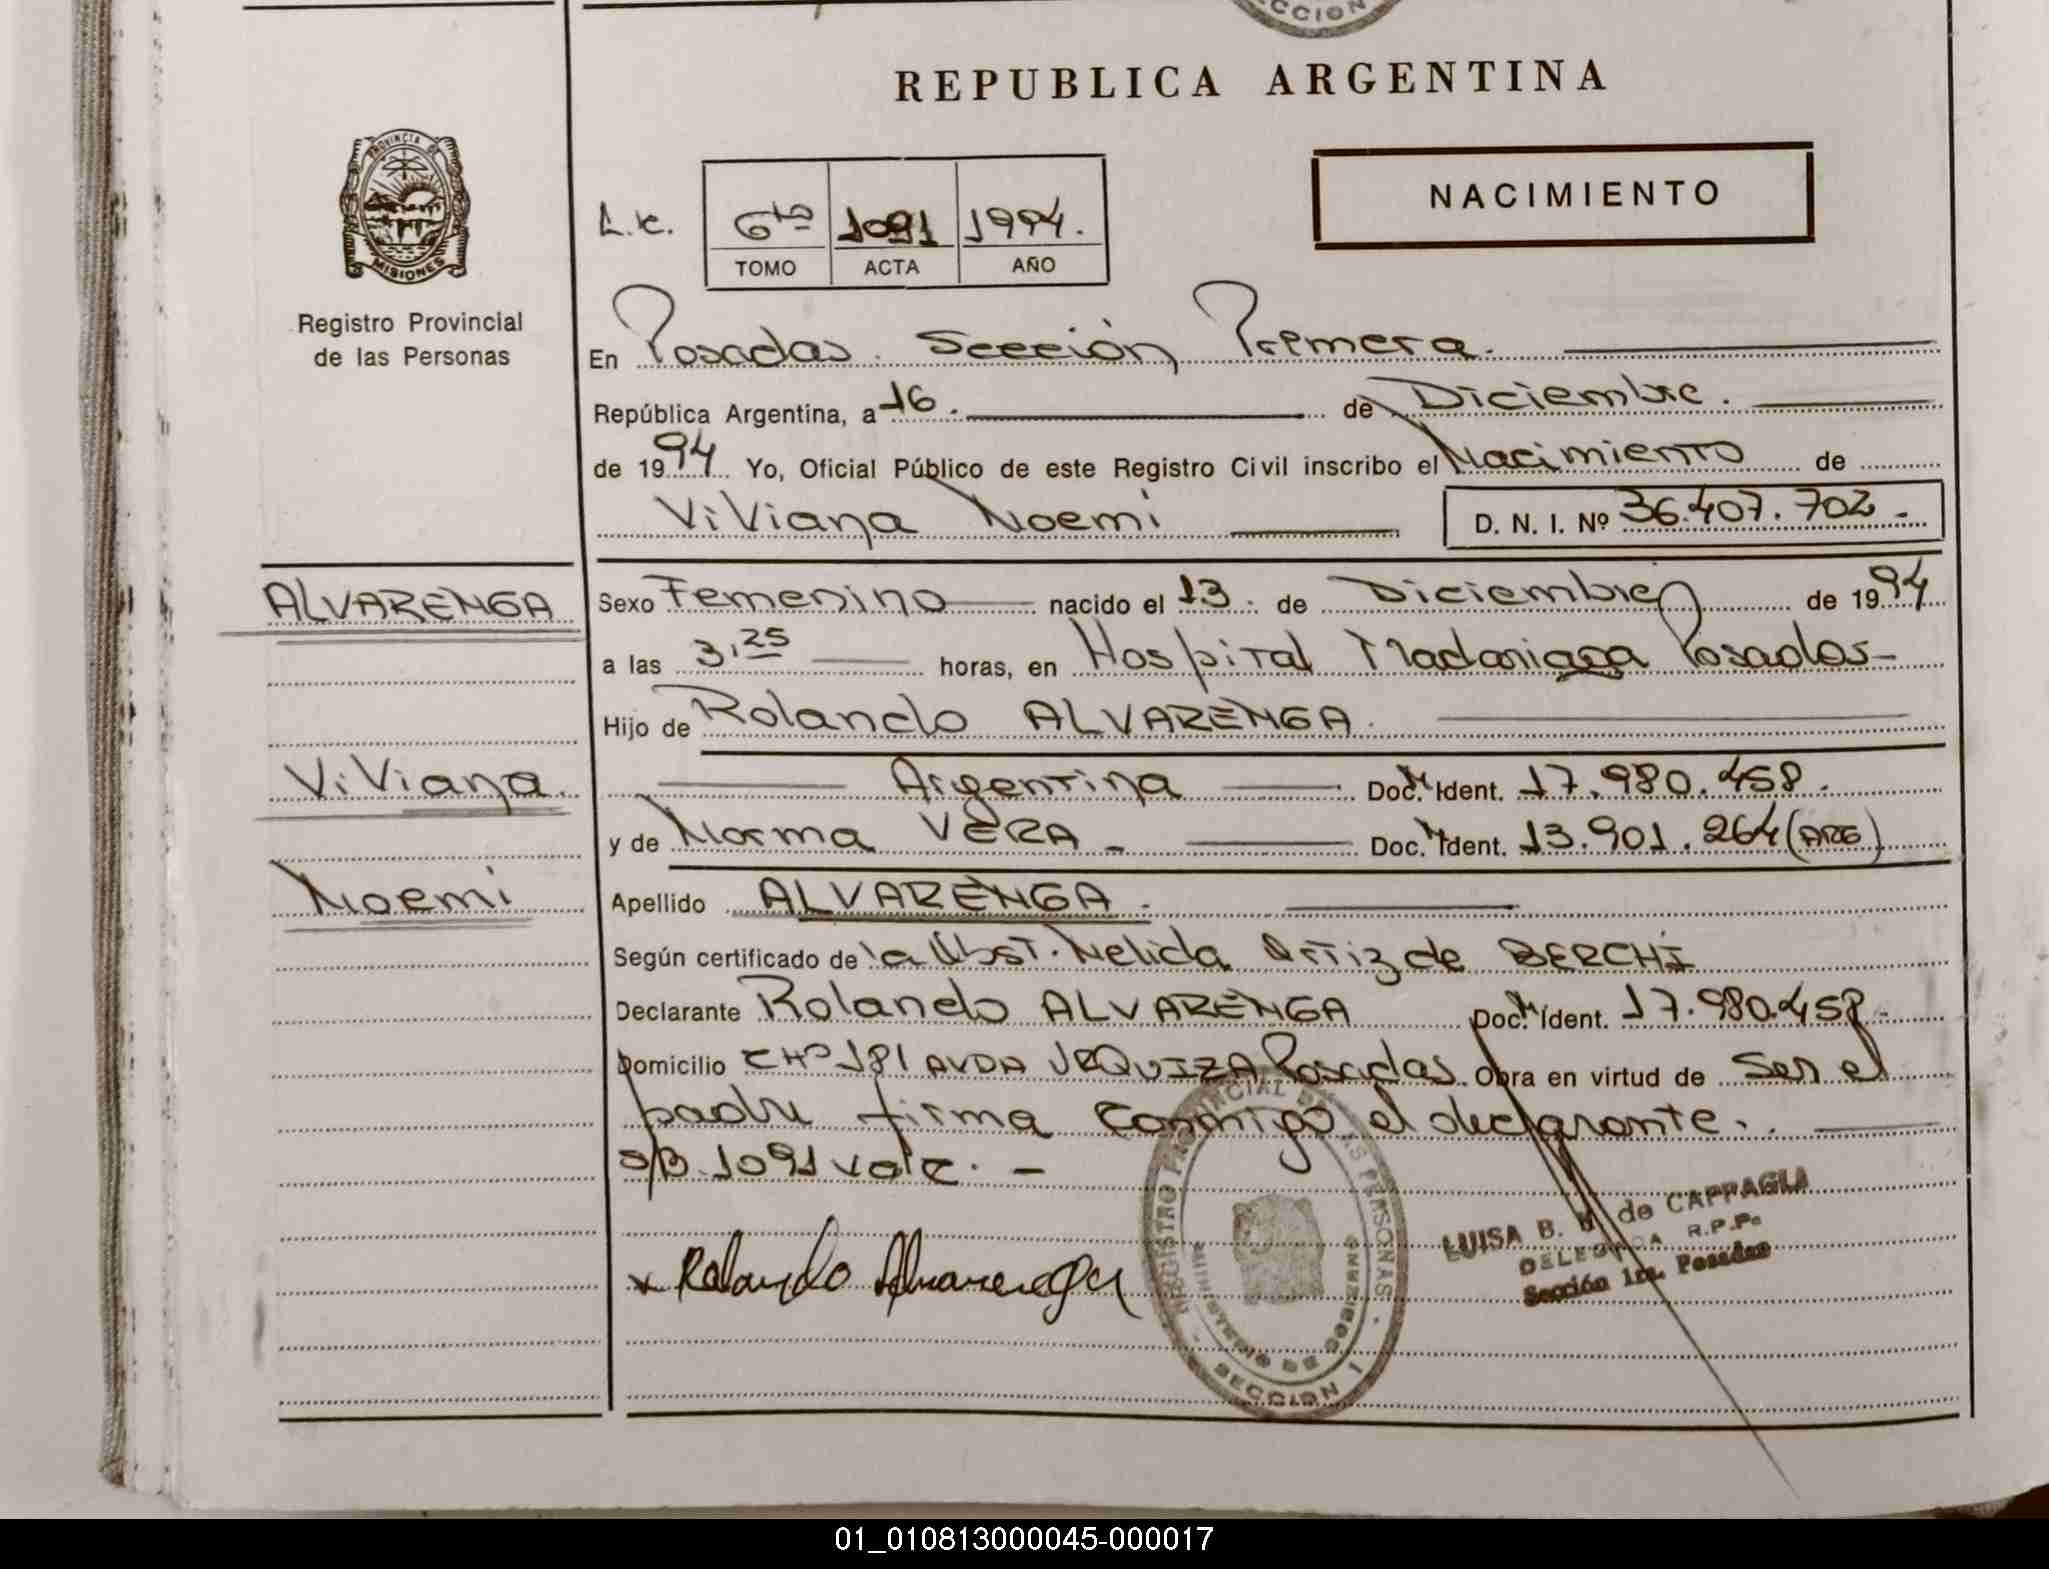 CCION
REPUBLICA ARGENTINA
PROVINCIA DE
MISIONES
Registro Provincial
de las Personas
L.c. 6to 1091 1994.
TOMO ACTA AÑO
NACIMIENTO
En Posadas. Sección Primera.
República Argentina, a 16. de Diciembre.
de 1994 Yo, Oficial Público de este Registro Civil inscribo el Nacimiento de
Viviana Noemi D. N. I. Nº 36.407.702.-
ALVARENGA
Viviana
Noemi
Sexo Femenino nacido el 13. de Diciembre de 1994
a las 3,25 horas, en Hospital Madariaga Posadas-
Hijo de Rolando ALVARENGA.
Argentina Doc. Ident. 17.980.458.
y de Norma VERA - Doc. Ident. 13.901.264 (ARG)
Apellido ALVARENGA.
Según certificado de la Obst. Nelida Ortiz de BERCHI
Declarante Rolando ALVARENGA Doc. Ident. 17.980.458.-
Domicilio CHº 181 AVDA URQUIZA Posadas. Obra en virtud de ser el
padre firma conmigo el declarante.
S/B. 1091 vale. -
x Rolando Alvarenga
REGISTRO PROVINCIAL DE LAS PERSONAS
MINISTERIO DE GOBIERNO
SECCION 1
LUISA B. de CAPPAGLI
DELEGADA R.P.P.
Sección 1ra. Posadas
01_010813000045-000017